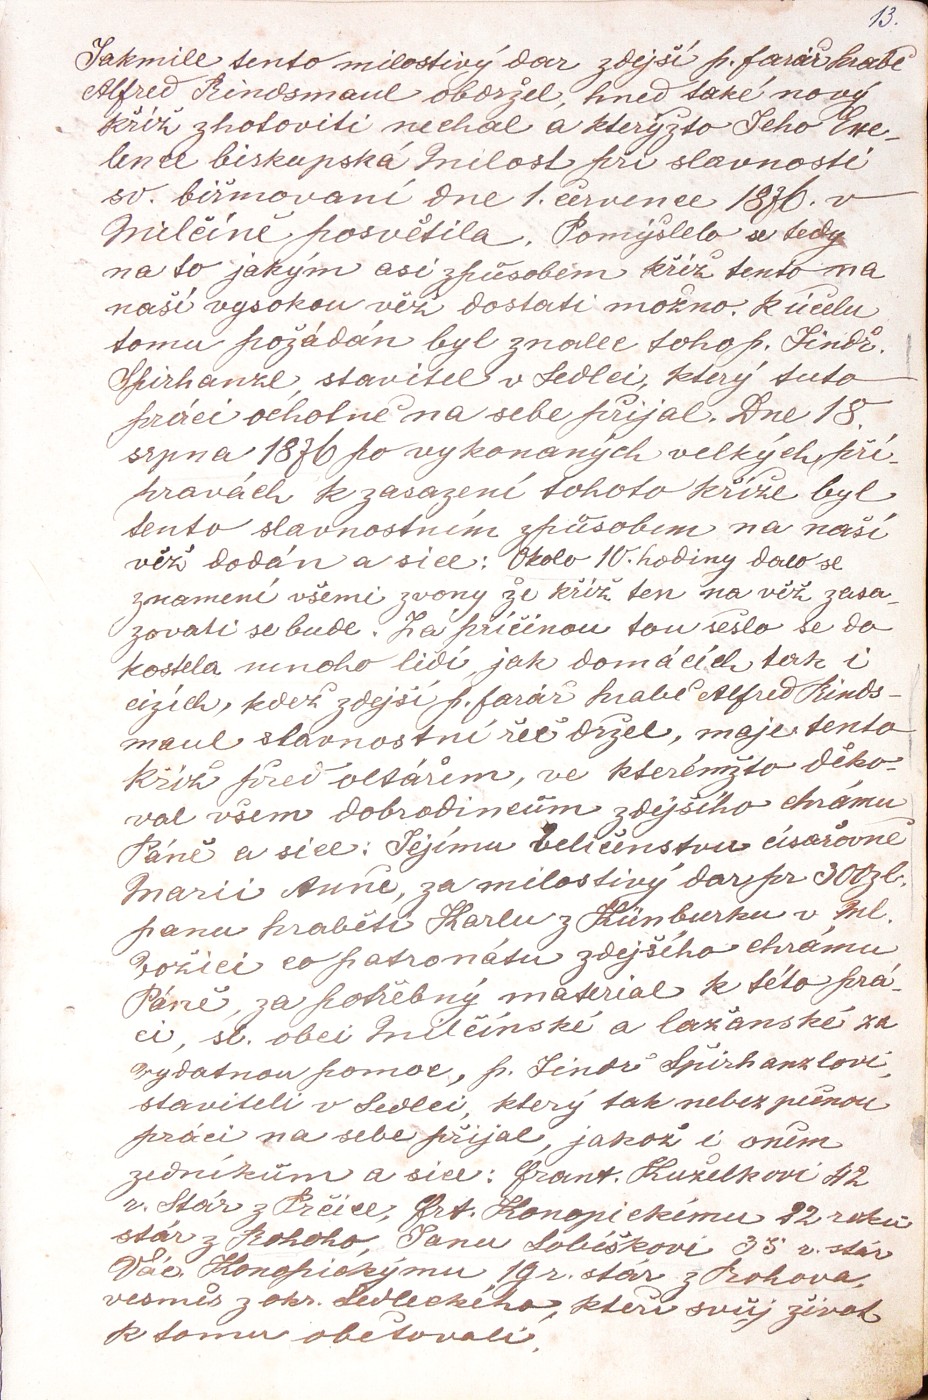 13.
Jakmile tento milostivý dar zdejší p. farář hrabě
Alfred Rindsmaul obdržel, hned také nový
kříž zhotoviti nechal a kterýžto Jeho Exe-
lence biskupská Milost při slavnosti
sv. biřmovaní dne 1. července 1876. v
Milčíně posvětila. Pomýšlelo se tedy
na to jakým asi způsobem kříž tento na
naší vysokou věž dostati možno. K účelu
tomu požádán byl znalec toho p. Jindř.
Špirhanzl, stavitel v Sedlci, který tuto
práci ochotně na sebe přijal. Dne 18.
srpna 1876 po vykonaných velkých pří-
pravách k zasazení tohoto kříže byl
tento slavnostním způsobem na naší
věž dodán a sice: Okolo 10. hodiny dalo se
znamení všemi zvony že kříž ten na věž zasa-
zovati se bude. Za příčinou tou sešlo se do
kostela mnoho lidí, jak domácích tak i
cizích, kdež zdejší p. farář hrabě Alfred Rinds-
maul slavnostní řeč držel, maje tento
kříž před oltářem, ve kterémžto děko-
val všem dobrodincům zdejšího chrámu
Páně a sice: Jejímu Veličenstvu císařovně
Marii Anně, za milostivý dar pr 300 zl.
panu hraběti Karlu z Künburku v Ml.
Vožici co patronátu zdejšího chrámu
Páně, za potřebný material k této prá-
ci, sl. obci Milčínské a lažanské za
vydatnou pomoc, p. Jindř Špirhanzlovi,
staviteli v Sedlci, který tak nebezpečnou
práci na sebe přijal, jakož i oněm
zedníkům a sice: Frant. Kuželkovi 42
r. stár z Prčice, Frt. Konopickému 22 roků
stár z Rohoho, Janu Lobíškovi 35 r. stár
Vác. Konopickýmu 19 r. stár z Rohova,
vesměs z okr. Sedleckého, kteří svůj život
k tomu obětovali.